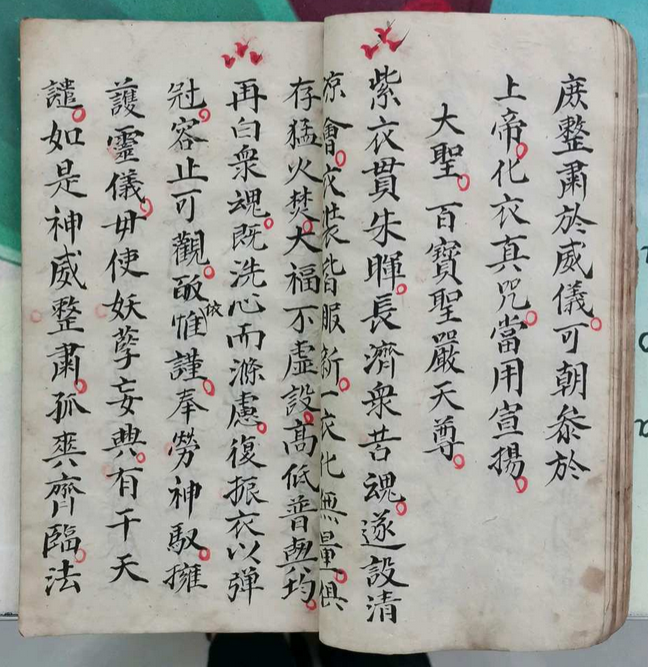 庶整肅於威儀可朝叅於
上帝化衣真咒當用宣揚
大聖百寶聖嚴天尊
紫衣貫朱暉長濟衆苦魂遂設清
凉會衣裝皆服新一衣化無量俱
存猛火焚大福不虛設高低普齊均
再白衆魂既洗心而滌慮復振衣以弹
冠容止可觀敬惟謹奉勞神馭擁
依
護靈儀毋使妖孽妄興有干天
譴如是神威整肅孤爽齊臨法